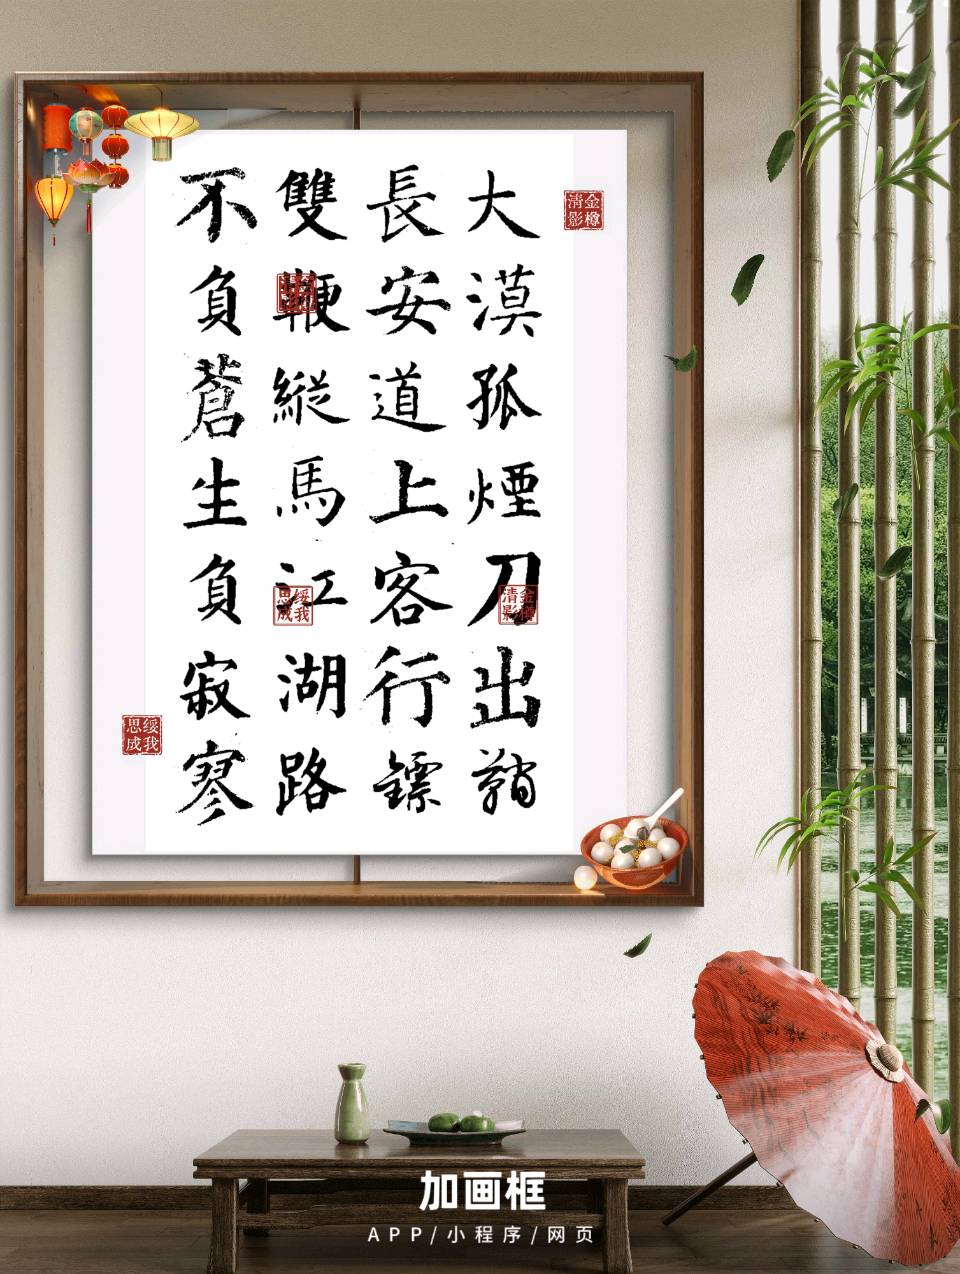 大漠孤煙刀出鞘
長安道上客行鏢
雙鞭縱馬江湖路
不負蒼生負寂寥
金樽清影
金樽清影
綏我思成
綏我思成
加画框
APP/小程序/网页